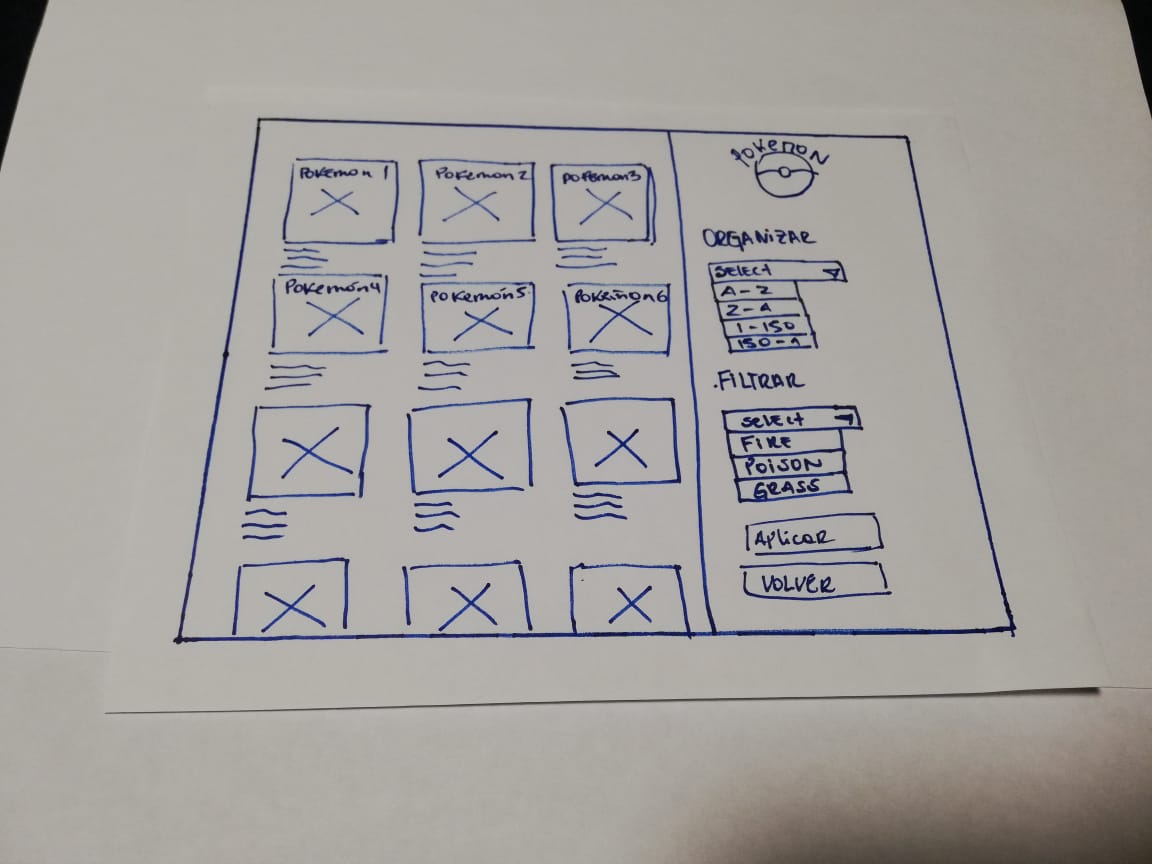 Pokemon 1
Pokemon 2
Pokemon 3
Pokemon 4
Pokemon 5
Pokemon 6
POKEMON
ORGANIZAR
SELECT
A-Z
Z-A
1-150
150-1
.FILTRAR
SELECT
FIRE
POISON
GRASS
Aplicar
VOLVER